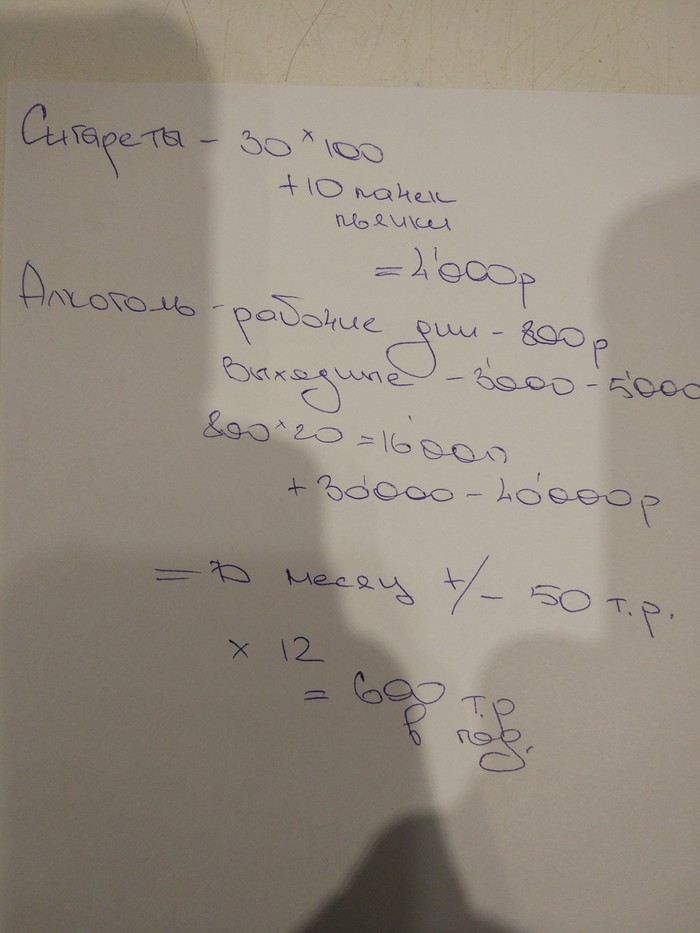 Сигареты - 30 × 100
+ 10 пачек
пьянки
= 4'000р
Алкоголь - рабочие дни - 800р
Выходные - 3'000 - 5'000
800 × 20 = 16'000
+ 30'000 - 40'000р
= месяц +/- 50 т.р.
× 12
= 600 т.р
в год.